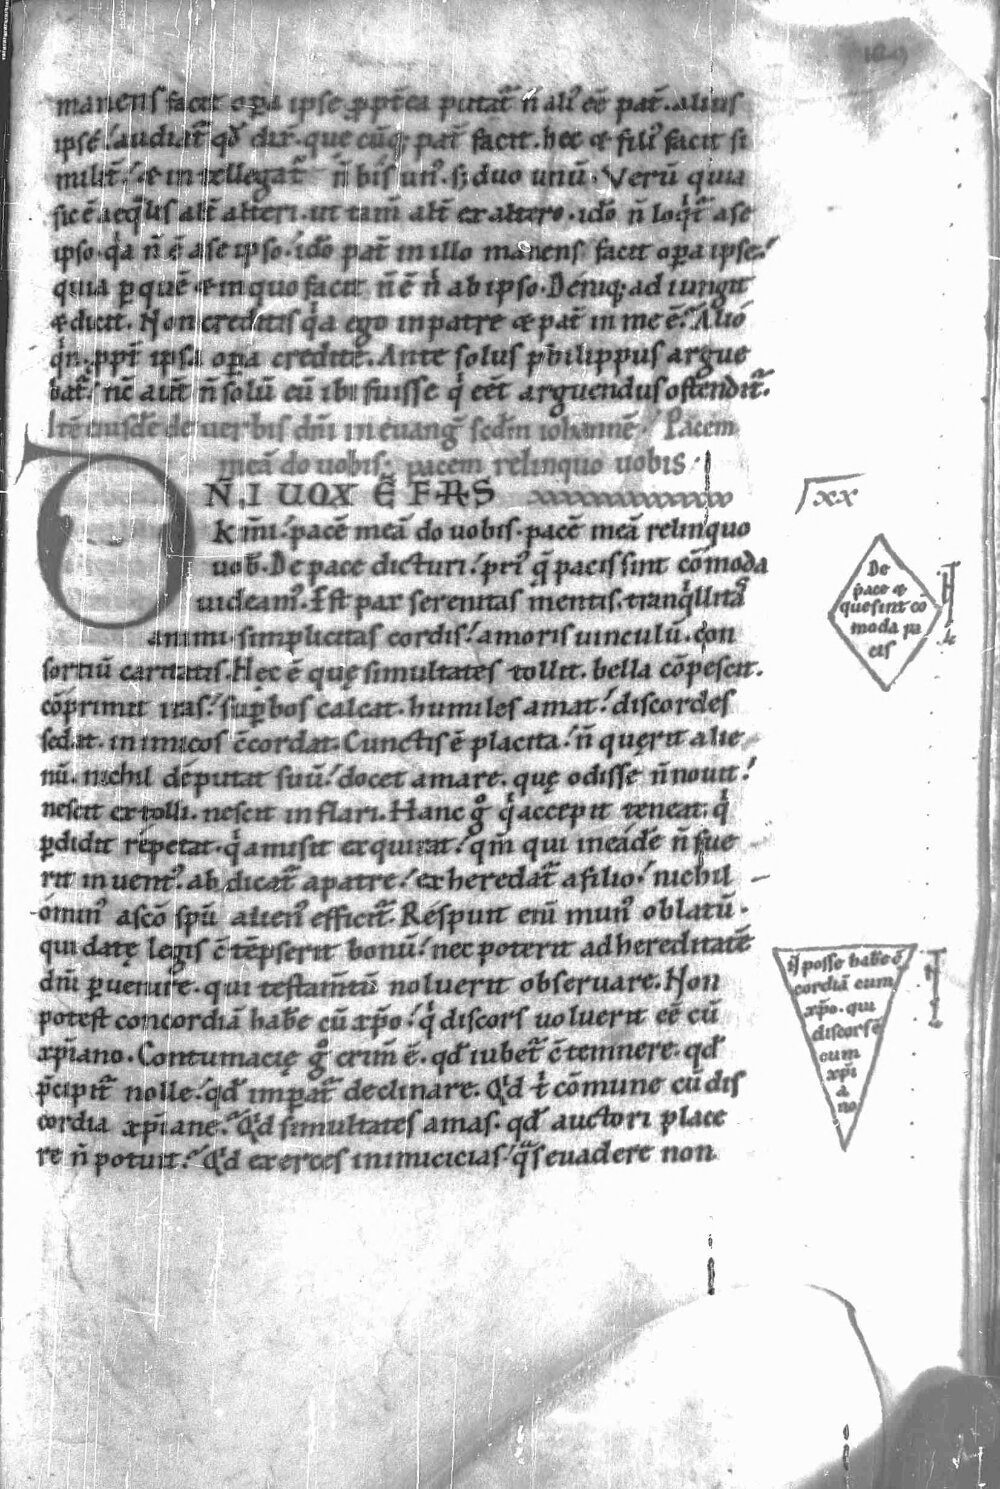 manens facit opa ipse ppt̄ea putat̄ n̄ aliꝰ eē pat̄. alius
ipsé. audiat̄ qđ dix̄. que cūq; pat̄ facit. hec & filiꝰ facit si
milit̄. & intellegat̄ n̄ bis unꝰ. s; duo unū. Verū quia
sic ē aeq̄lis alt̄ alteri. ut tam̄ alt̄ ex altero. ido n̄ loqit̄ a se
ipso. qa n̄ ē a se ipso. ido pat̄ in illo manens facit opa ipse.
quia p quē & in quo facit n̄ ē n̄ ab ipso. Deniq; ad iungit
& dicit. Non creditis qa ego in patre & pat̄ in me ē. Alió
qn̄. ppt̄ ipsa opa credite. Ante solus philippus argue
bat̄. nc̄ aut̄ n̄ solū eū ibi fuisse q eēt arguendus ostendit̄.
Itē eiusdē de uerbis dn̄i in euanḡ scdm iohannē. Pacem
meā do uobis. pacem relinquo uobis
DN̄I UOX Ē FR̄S
K m̄i. pacē meā do uobis. pacē meā relinquo
uob. De pace dicturi. priꝰ q̄ pacis sint cōmoda
uideamꝰ. Est pax serenitas mentis. tranqllitas
animi. simplicitas cordis. amoris uinculū. con
sortiū caritatis. Hęc ē quę simultates tollit. bella cōpescit.
cōprimit iras. supbos calcat. humiles amat. discordes
sedat. inimicos c̄cordat. Cunctis ē placita. n̄ quęrit alie
nū. nichil deputat suū. docet amare. quę odisse n̄ nouit.
nescit extolli. nescit inflari. Hanc g q accepit teneat. q
pdidit repetat. q amisit exquirat. qm̄ qui in eadē n̄ fue
rit inuentꝰ. ab dicat̄ a patre. exheredat̄ a filio. nichil
ominꝰ a scō spū alienꝰ efficit̄. Respuit eni munꝰ oblatū.
qui datę legis c̄tēpserit bonū. nec poterit ad hereditatē
dn̄i puenire. qui testam̄tū noluerit obseruare. Non
potest concordiā habe cū xp̄o. q discors uoluerit eē cū
xp̄iano. Contumacię g crim̄ ē. qđ iubet̄ c̄temnere. qđ
p̄cipit̄ nolle. qđ impat̄ declinare. Qd t cōmune cū dis
cordia xp̄iane. Qd simultates amas. qđ auctori place
re n̄ potuit. Qd exerces inimicicias. q̄s euadere non
xx
De
pace &
que sint cō
moda pa
cis
N̄ posse habe cō
cordiā cum
xp̄o. qui
discors ē
cum
xp̄i
a
no